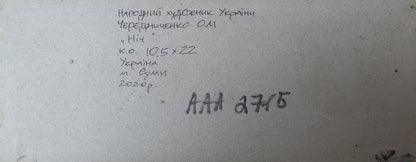 Народний художник України
Чередниченко О.М
„Ніч"
к.о. 10,5 × 22
Україна
м. Суми
2020р.
ААА 2715